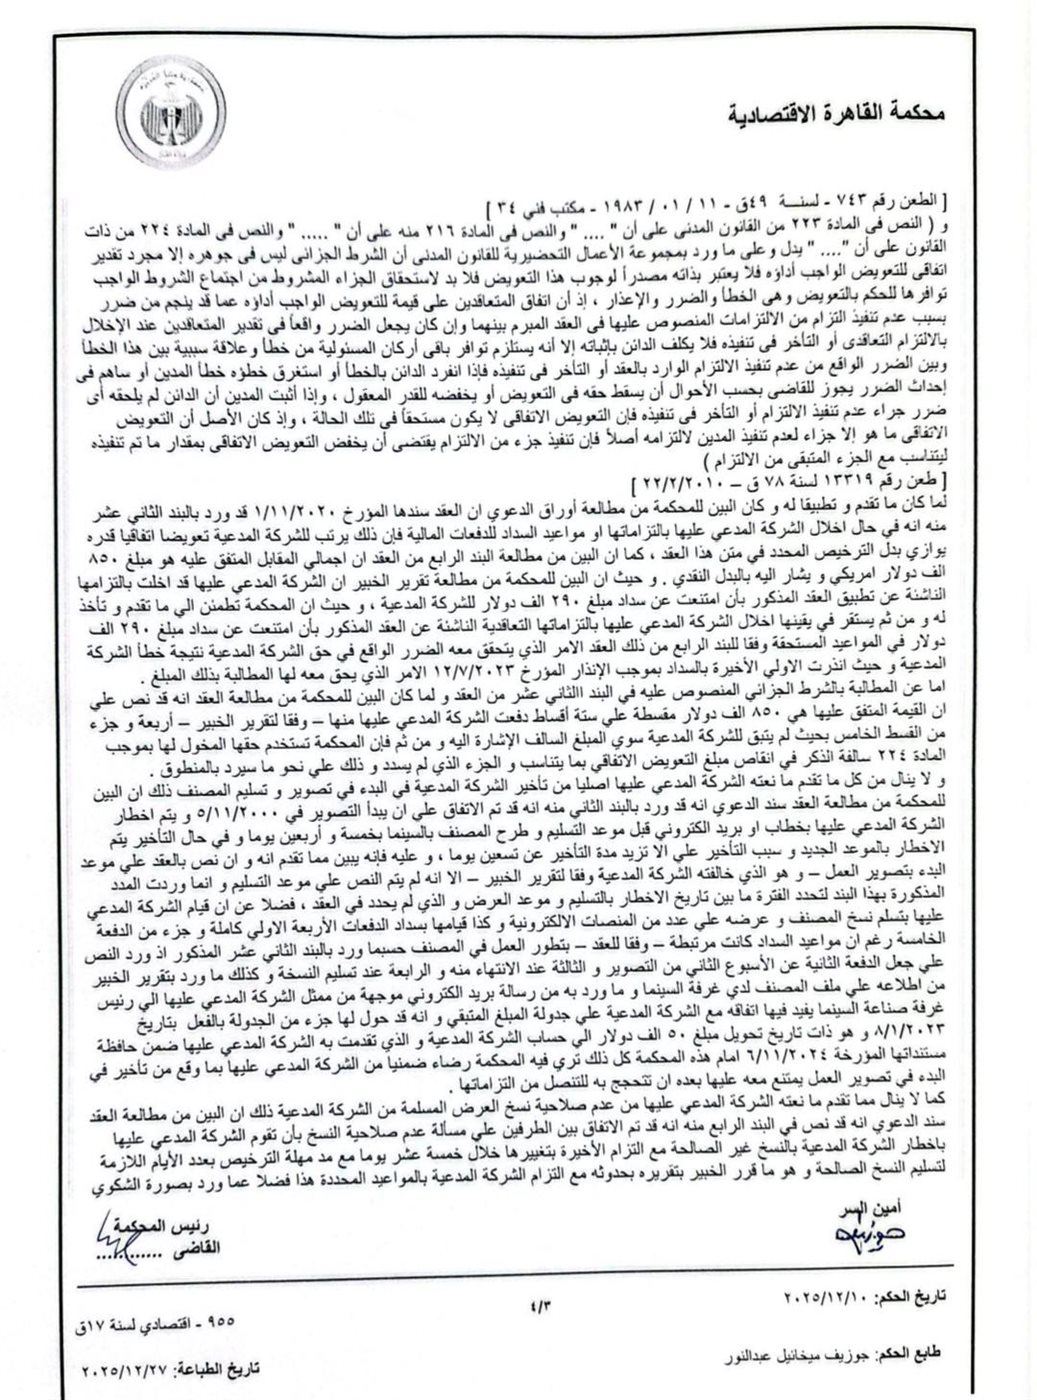 محكمة القاهرة الاقتصادية
[ الطعن رقم ٧٤٣ - لسنــة ٤٩ق - ١١ / ٠١ / ١٩٨٣ - مكتب فني ٣٤ ]
و ( النص فى المادة ٢٢٣ من القانون المدنى على أن " .... " والنص فى المادة ٢١٦ منه على أن " ..... " والنص فى المادة ٢٢٤ من ذات
القانون على أن "...." يدل وعلى ما ورد بمجموعة الأعمال التحضيرية للقانون المدنى أن الشرط الجزائى ليس فى جوهره إلا مجرد تقدير
اتفاقى للتعويض الواجب أداؤه فلا يعتبر بذاته مصدراً لوجوب هذا التعويض فلا بد لاستحقاق الجزاء المشروط من اجتماع الشروط الواجب
توافرها للحكم بالتعويض وهى الخطأ والضرر والإعذار ، إذ أن اتفاق المتعاقدين على قيمة للتعويض الواجب أداؤه عما قد ينجم من ضرر
بسبب عدم تنفيذ التزام من الالتزامات المنصوص عليها فى العقد المبرم بينهما وإن كان يجعل الضرر واقعاً فى تقدير المتعاقدين عند الإخلال
بالالتزام التعاقدى أو التأخر فى تنفيذه فلا يكلف الدائن بإثباته إلا أنه يستلزم توافر باقى أركان المسئولية من خطأ وعلاقة سببية بين هذا الخطأ
وبين الضرر الواقع من عدم تنفيذ الالتزام الوارد بالعقد أو التأخر فى تنفيذه فإذا انفرد الدائن بالخطأ أو استغرق خطؤه خطأ المدين أو ساهم فى
إحداث الضرر يجوز للقاضى بحسب الأحوال أن يسقط حقه فى التعويض أو يخفضه للقدر المعقول ، وإذا أثبت المدين أن الدائن لم يلحقه أى
ضرر جراء عدم تنفيذ الالتزام أو التأخر فى تنفيذه فإن التعويض الاتفاقى لا يكون مستحقاً فى تلك الحالة ، وإذ كان الأصل أن التعويض
الاتفاقى ما هو إلا جزاء لعدم تنفيذ المدين لالتزامه أصلاً فإن تنفيذ جزء من الالتزام يقتضى أن يخفض التعويض الاتفاقى بمقدار ما تم تنفيذه
ليتناسب مع الجزء المتبقى من الالتزام )
[ طعن رقم ١٣٣١٩ لسنة ٧٨ ق – ٢٢/٢/٢٠١٠ ]
لما كان ما تقدم و تطبيقا له و كان البين للمحكمة من مطالعة أوراق الدعوي ان العقد سندها المؤرخ ١/١١/٢٠٢٠ قد ورد بالبند الثاني عشر
منه انه في حال اخلال الشركة المدعي عليها بالتزاماتها او مواعيد السداد للدفعات المالية فإن ذلك يرتب للشركة المدعية تعويضا اتفاقيا قدره
يوازي بدل الترخيص المحدد في متن هذا العقد ، كما ان البين من مطالعة البند الرابع من العقد ان اجمالي المقابل المتفق عليه هو مبلغ ٨٥٠
الف دولار امريكي و يشار اليه بالبدل النقدي . و حيث ان البين للمحكمة من مطالعة تقرير الخبير ان الشركة المدعي عليها قد اخلت بالتزامها
الناشئة عن تطبيق العقد المذكور بأن امتنعت عن سداد مبلغ ٢٩٠ الف دولار للشركة المدعية ، و حيث ان المحكمة تطمئن الي ما تقدم و تأخذ
له و من ثم يستقر في يقينها اخلال الشركة المدعي عليها بالتزاماتها التعاقدية الناشئة عن العقد المذكور بأن امتنعت عن سداد مبلغ ٢٩٠ الف
دولار في المواعيد المستحقة وفقا للبند الرابع من ذلك العقد الامر الذي يتحقق معه الضرر الواقع في حق الشركة المدعية نتيجة خطأ الشركة
المدعية و حيث انذرت الاولي الأخيرة بالسداد بموجب الإنذار المؤرخ ١٢/٧/٢٠٢٣ الامر الذي يحق معه لها المطالبة بذلك المبلغ .
اما عن المطالبة بالشرط الجزائي المنصوص عليه في البند االثاني عشر من العقد و لما كان البين للمحكمة من مطالعة العقد انه قد نص علي
ان القيمة المتفق عليها هي ٨٥٠ الف دولار مقسطة علي ستة أقساط دفعت الشركة المدعي عليها منها – وفقا لتقرير الخبير – أربعة و جزء
من القسط الخامس بحيث لم يتبق للشركة المدعية سوي المبلغ السالف الإشارة اليه و من ثم فإن المحكمة تستخدم حقها المخول لها بموجب
المادة ٢٢٤ سالفة الذكر في انقاص مبلغ التعويض الاتفاقي بما يتناسب و الجزء الذي لم يسدد و ذلك علي نحو ما سيرد بالمنطوق .
و لا ينال من كل ما تقدم ما نعته الشركة المدعي عليها اصليا من تأخير الشركة المدعية في البدء في تصوير و تسليم المصنف ذلك ان البين
للمحكمة من مطالعة العقد سند الدعوي انه قد ورد بالبند الثاني منه انه قد تم الاتفاق علي ان يبدأ التصوير في ٥/١١/٢٠٠٠ و يتم اخطار
الشركة المدعي عليها بخطاب او بريد الكتروني قبل موعد التسليم و طرح المصنف بالسينما بخمسة و أربعين يوما و في حال التأخير يتم
الاخطار بالموعد الجديد و سبب التأخير علي الا تزيد مدة التأخير عن تسعين يوما ، و عليه فإنه يبين مما تقدم انه و ان نص بالعقد علي موعد
البدء بتصوير العمل – و هو الذي خالفته الشركة المدعية وفقا لتقرير الخبير – الا انه لم يتم النص علي موعد التسليم و انما وردت المدد
المذكورة بهذا البند لتحدد الفترة ما بين تاريخ الاخطار بالتسليم و موعد العرض و الذي لم يحدد في العقد ، فضلا عن ان قيام الشركة المدعي
عليها بتسلم نسخ المصنف و عرضه علي عدد من المنصات الالكترونية و كذا قيامها بسداد الدفعات الأربعة الاولي كاملة و جزء من الدفعة
الخامسة رغم ان مواعيد السداد كانت مرتبطة – وفقا للعقد – بتطور العمل في المصنف حسبما ورد بالبند الثاني عشر المذكور اذ ورد النص
علي جعل الدفعة الثانية عن الأسبوع الثاني من التصوير و الثالثة عند الانتهاء منه و الرابعة عند تسليم النسخة و كذلك ما ورد بتقرير الخبير
من اطلاعه علي ملف المصنف لدي غرفة السينما و ما ورد به من رسالة بريد الكتروني موجهة من ممثل الشركة المدعي عليها الي رئيس
غرفة صناعة السينما يفيد فيها اتفاقه مع الشركة المدعية علي جدولة المبلغ المتبقي و انه قد حول لها جزء من الجدولة بالفعل بتاريخ
٨/١/٢٠٢٣ و هو ذات تاريخ تحويل مبلغ ٥٠ الف دولار الي حساب الشركة المدعية و الذي تقدمت به الشركة المدعي عليها ضمن حافظة
مستنداتها المؤرخة ٦/١١/٢٠٢٤ امام هذه المحكمة كل ذلك تري فيه المحكمة رضاء ضمنيا من الشركة المدعي عليها بما وقع من تأخير في
البدء في تصوير العمل يمتنع معه عليها بعده ان تتحجج به للتنصل من التزاماتها .
كما لا ينال مما تقدم ما نعته الشركة المدعي عليها من عدم صلاحية نسخ العرض المسلمة من الشركة المدعية ذلك ان البين من مطالعة العقد
سند الدعوي انه قد نص في البند الرابع منه انه قد تم الاتفاق بين الطرفين علي مسألة عدم صلاحية النسخ بأن تقوم الشركة المدعي عليها
باخطار الشركة المدعية بالنسخ غير الصالحة مع التزام الأخيرة بتغييرها خلال خمسة عشر يوما مع مد مهلة الترخيص بعدد الأيام اللازمة
لتسليم النسخ الصالحة و هو ما قرر الخبير بتقريره بحدوثه مع التزام الشركة المدعية بالمواعيد المحددة هذا فضلا عما ورد بصورة الشكوي
أمين السر
رئيس المحكمة
القاضى ............
تاريخ الحكم: ٢٠٢٥/١٢/١٠
٤/٣
٩٥٥ - اقتصادي لسنة ١٧ق
طابع الحكم: جوزيف ميخانيل عبدالنور
تاريخ الطباعة: ٢٠٢٥/١٢/٢٧